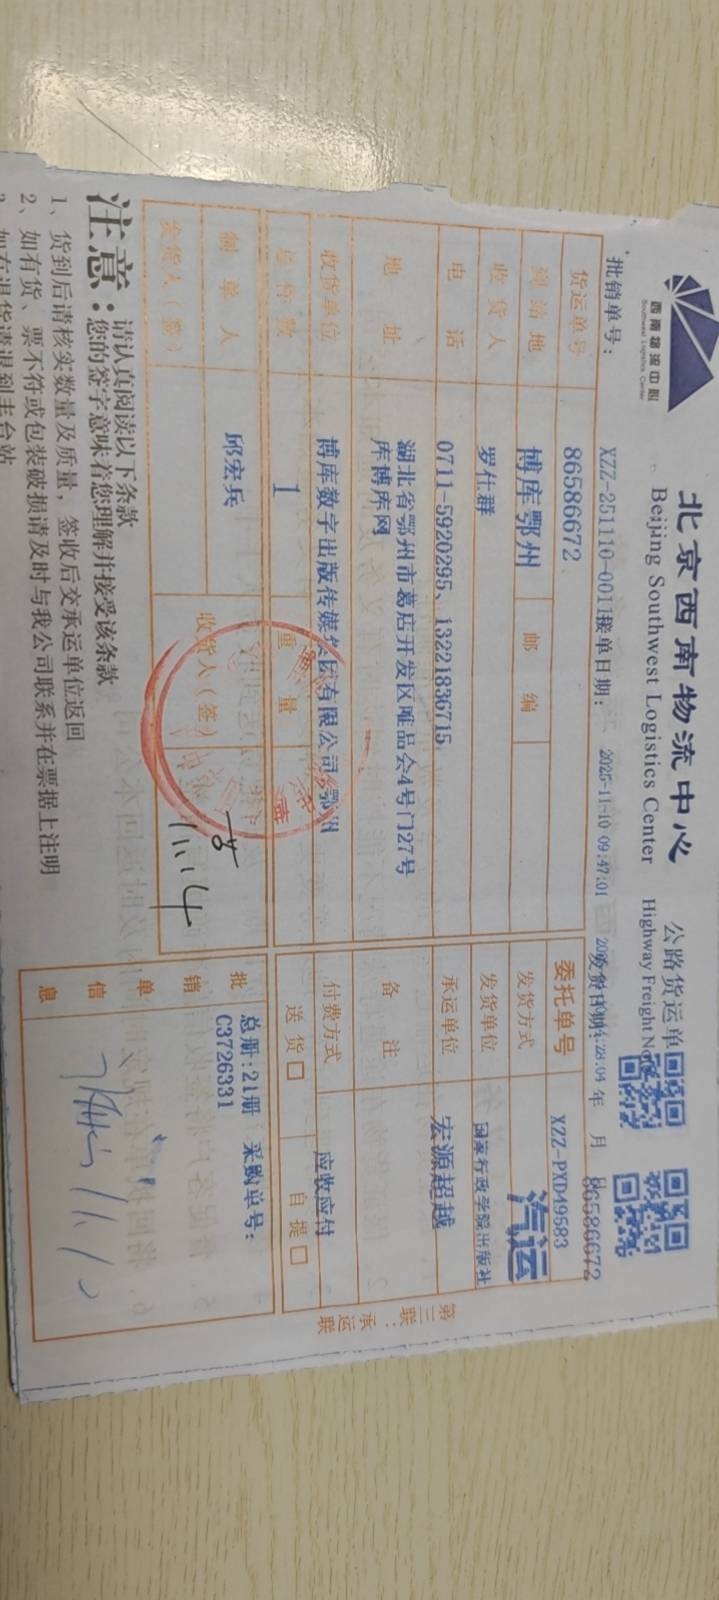 西南物流中心
Southwest Logistics Center
北京西南物流中心
Beijing Southwest Logistics Center
公路货运单
Highway Freight No
批销单号：
XZZ-251110-0011接单日期：
2025-11-10 09:47:01
发货日期：
28:04 年 月 日
86586672
货运单号
86586672
委托单号
XZZ-PXD49583
到站地
博库鄂州
邮 编
发货方式
汽运
收货人
罗仕群
发货单位
国家行政学院出版社
电 话
0711-5920295、13221836715
承运单位
宏源超越
地 址
湖北省鄂州市葛店开发区唯品会4号门27号
库博库网
备 注
收货单位
博库数字出版传媒集团有限公司 鄂州
付费方式
应收应付
总件数
1
重 量
送 货 □
自 提 □
制 单 人
邱宏兵
收货人（签）
11.14
发货人（签）
批销单信息
总册：21册 采购单号：
C3726331
第三联：承运联
注意：
请认真阅读以下条款
您的签字意味着您理解并接受该条款
1、货到后请核实数量及质量，签收后交承运单位返回
2、如有货、票不符或包装破损请及时与我公司联系并在票据上注明
3、如有退货请退到丰台站